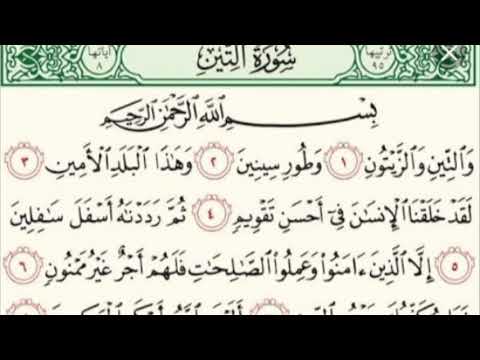 ترتيبها ٩٥ سُورَةُ التِّينِ آياتها ٨
بِسْمِ اللَّهِ الرَّحْمَٰنِ الرَّحِيمِ
وَالتِّينِ وَالزَّيْتُونِ ١ وَطُورِ سِينِينَ ٢ وَهَٰذَا الْبَلَدِ الْأَمِينِ ٣
لَقَدْ خَلَقْنَا الْإِنسَانَ فِي أَحْسَنِ تَقْوِيمٍ ٤ ثُمَّ رَدَدْنَٰهُ أَسْفَلَ سَافِلِينَ
٥ إِلَّا الَّذِينَ ءَامَنُوا۟ وَعَمِلُوا۟ الصَّالِحَٰتِ فَلَهُمْ أَجْرٌ غَيْرُ مَمْنُونٍ ٦